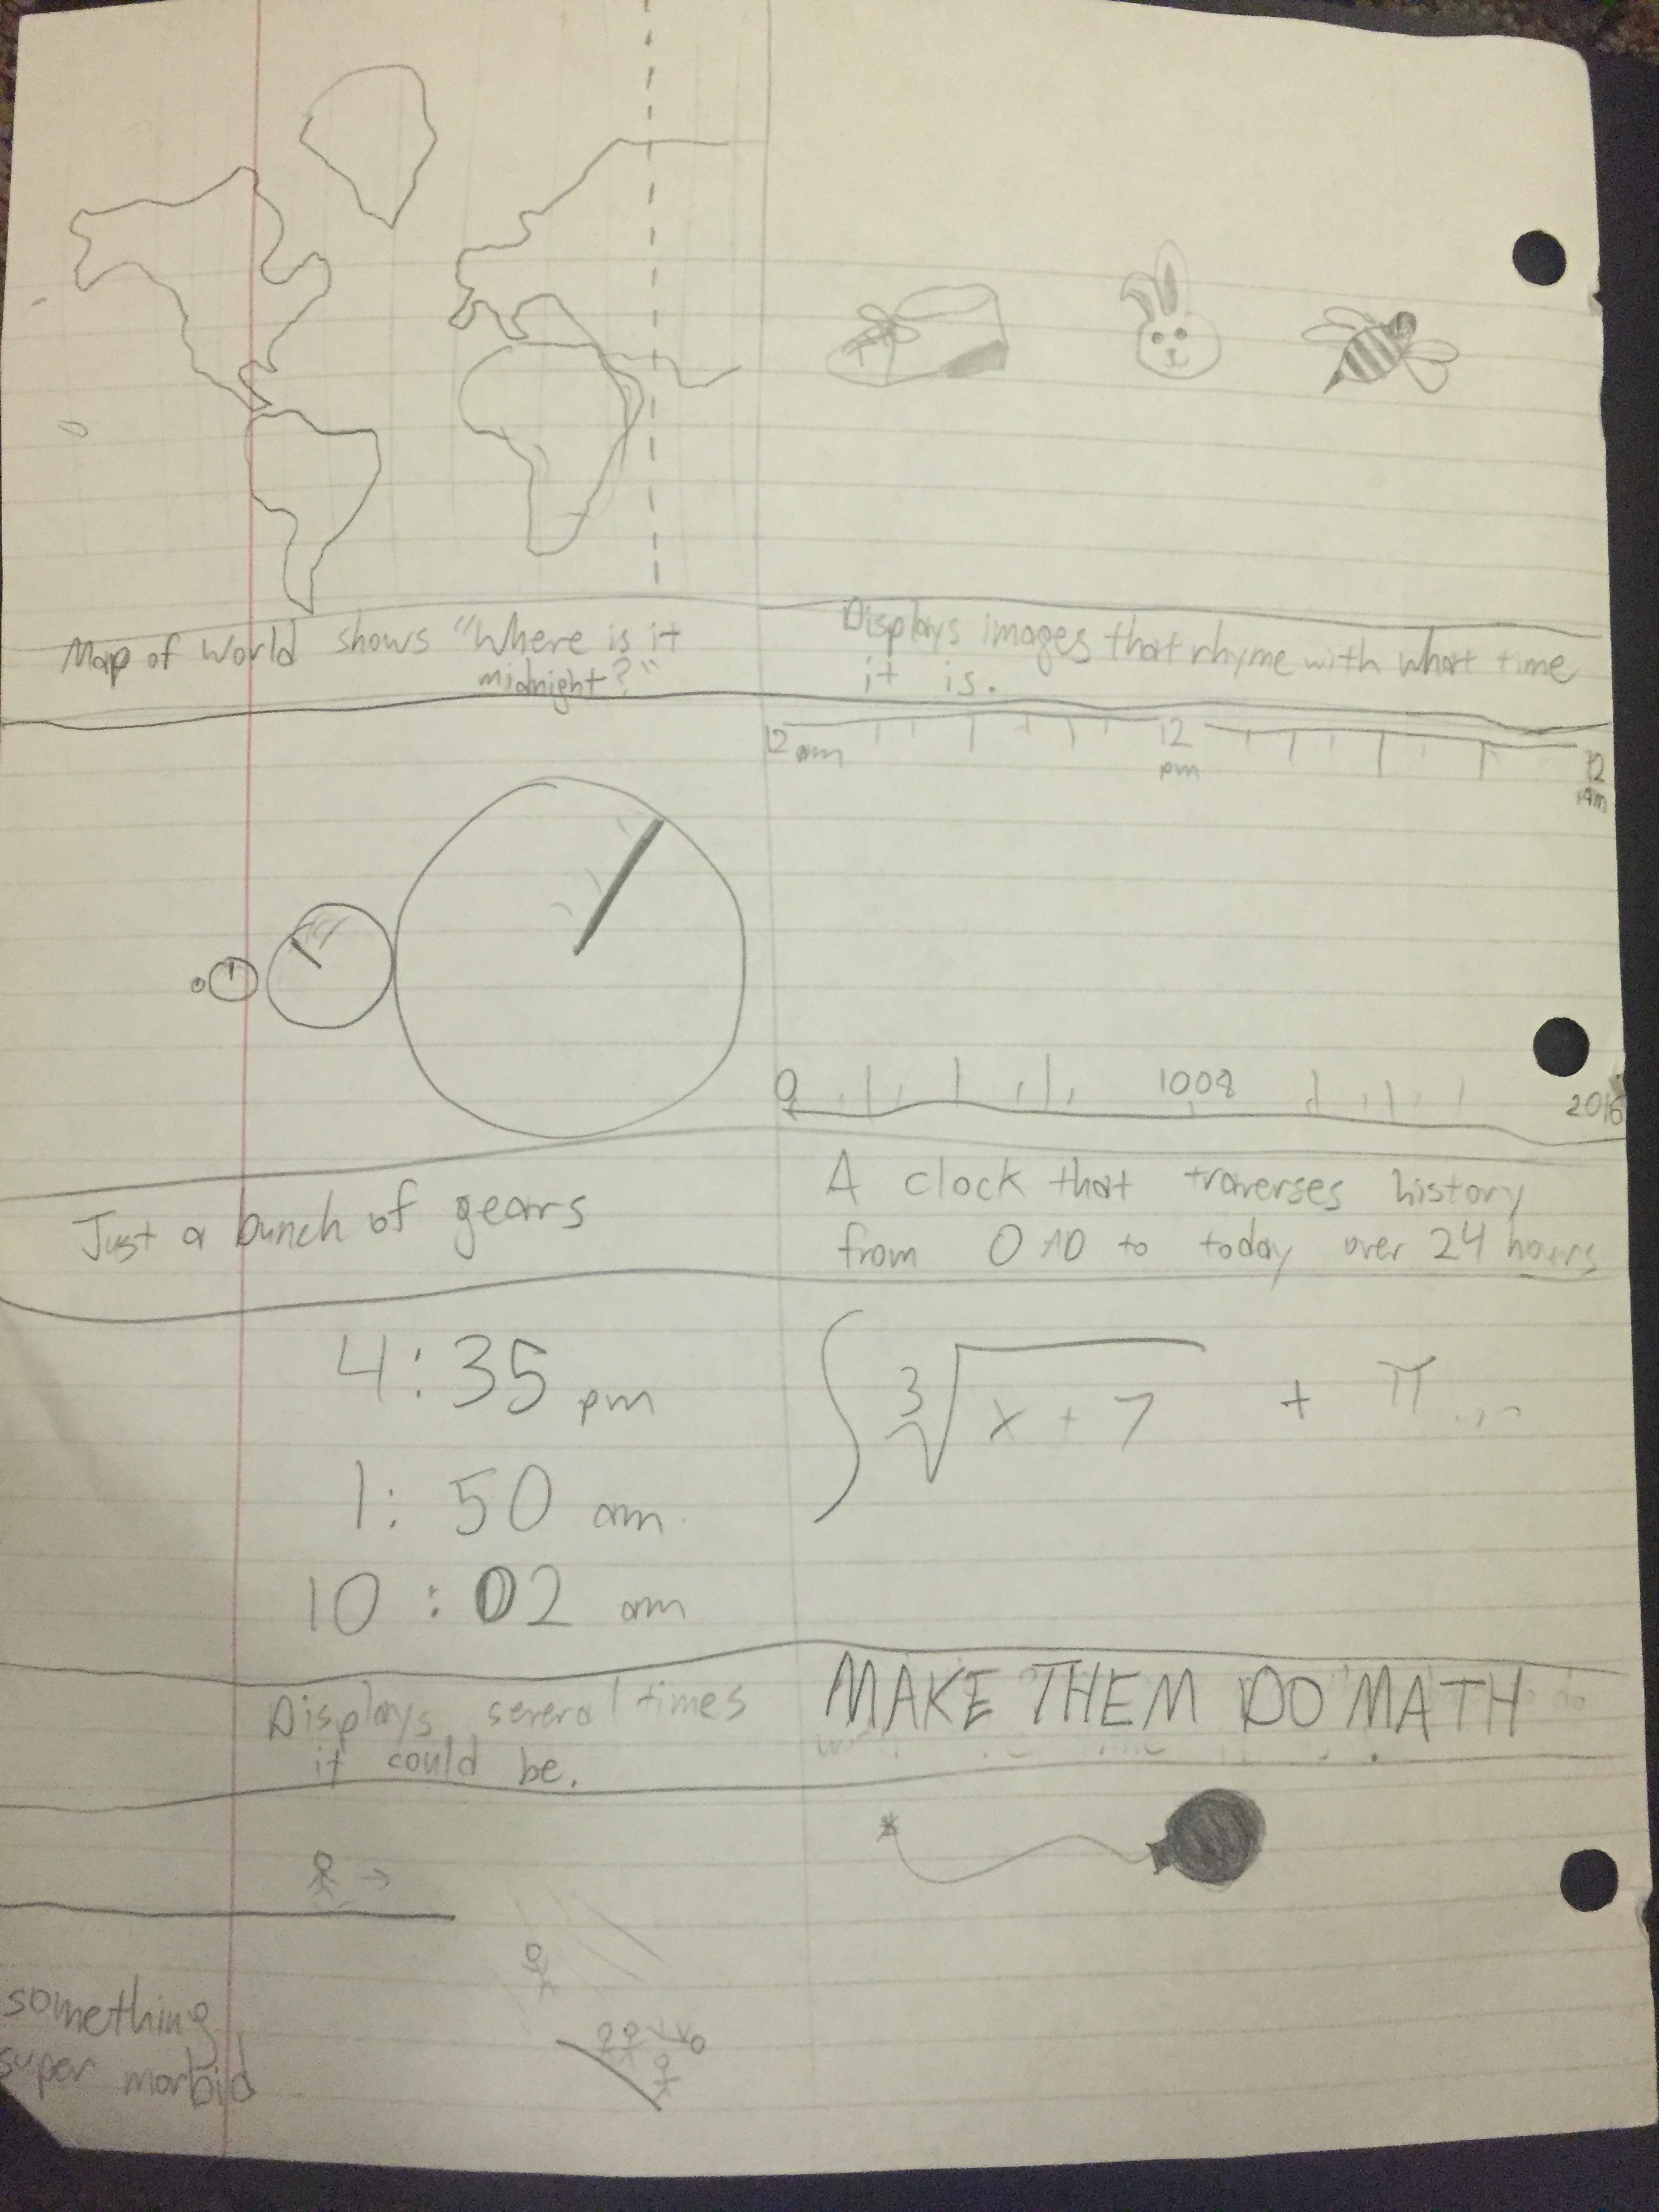 Map of World shows "Where is it
midnight?"
Displays images that rhyme with what time
it is.
12 am
12
pm
12
am
0
1008
2016
Just a bunch of gears
A clock that traverses history
from 0 AD to today over 24 hours
4:35 pm
1:50 am
10:02 am
Displays several times
it could be.
∫ ∛x + 7 + π...
MAKE THEM DO MATH
something
super morbid